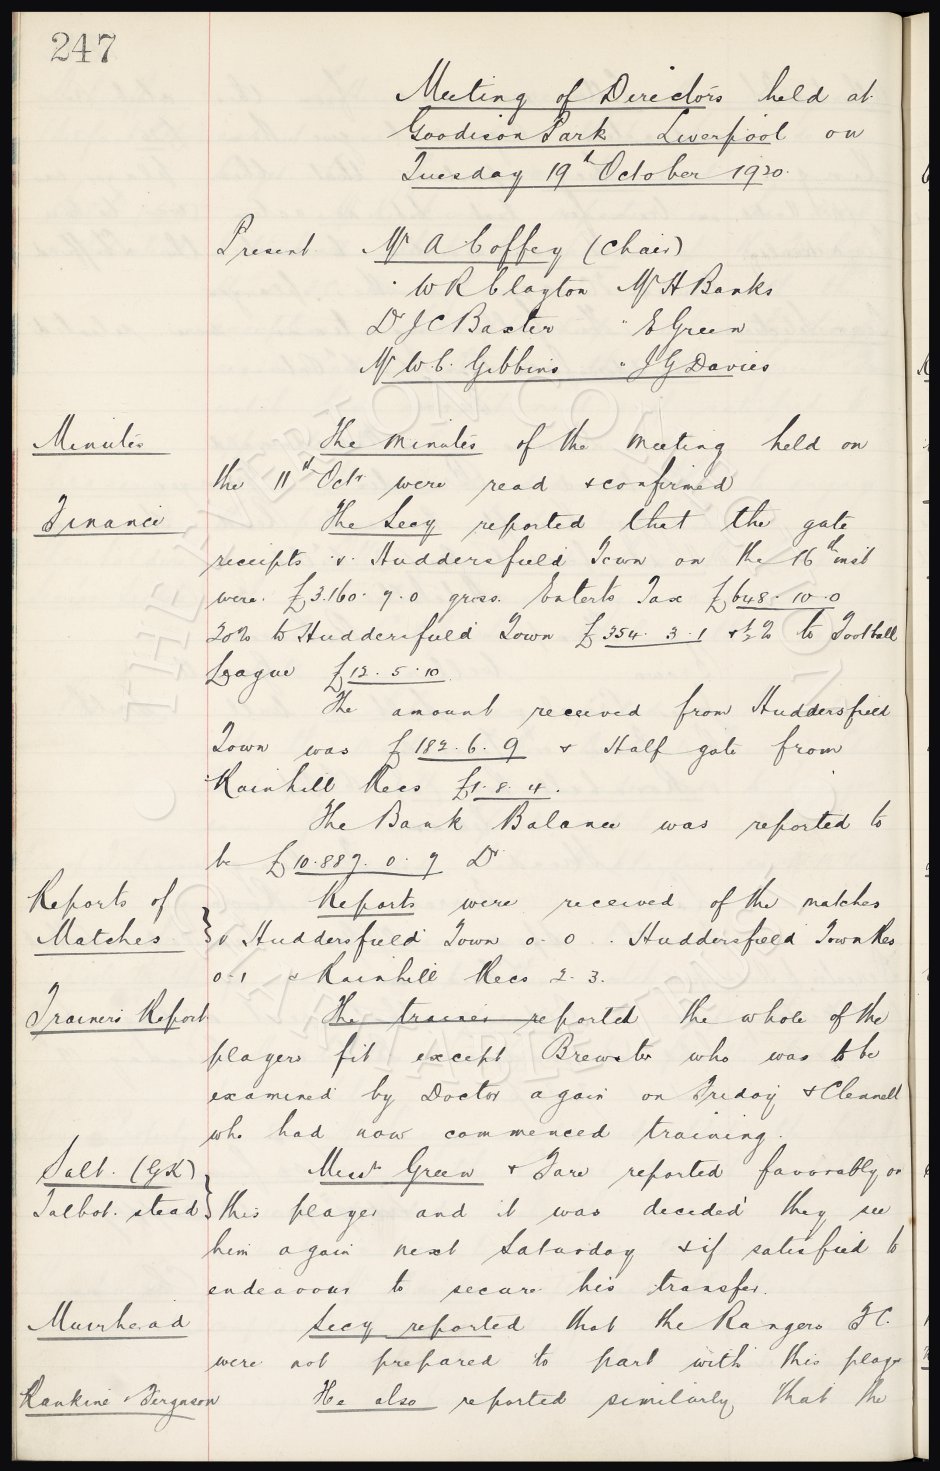 247
Meeting of Directors held at
Goodison Park Liverpool on
Tuesday 19th October 1920.
Present Mr A Coffey (Chair)
" W R Clayton Mr H Banks
Dr J C Baxter " E Green
Mr W.C. Gibbins " J G Davies
Minutes The minutes of the meeting held on
the 11th Octr were read & confirmed
Finance The Secy reported that the gate
receipts v. Huddersfield Town on the 16th inst
were £3.160. 7. 0 gross. Enterts Tax £648. 10. 0
20% to Huddersfield Town £354. 3. 1 & ½% to Football
League £12. 5. 10.
The amount received from Huddersfield
Town was £182. 6. 9 & Half gate from
Rainhill Recs £1. 8. 4.
The Bank Balance was reported to
be £10.887. 0. 7 Dr
Reports of Reports were received of the matches
Matches } v Huddersfield Town 0-0. Huddersfield Town Res
0-1 & Rainhill Recs 2-3.
Trainers Report The trainer reported the whole of the
players fit except Brewster who was to be
examined by Doctor again on Friday & Clennell
who had now commenced training.
Salt. (GK) Messrs Green & Fare reported favorably on
Talbot. stead } this player and it was decided they see
him again next Saturday & if satisfied to
endeavour to secure his transfer.
Muirhead Secy reported that the Rangers F.C.
were not prepared to part with this player
Rankine & Ferguson He also reported similarly that the